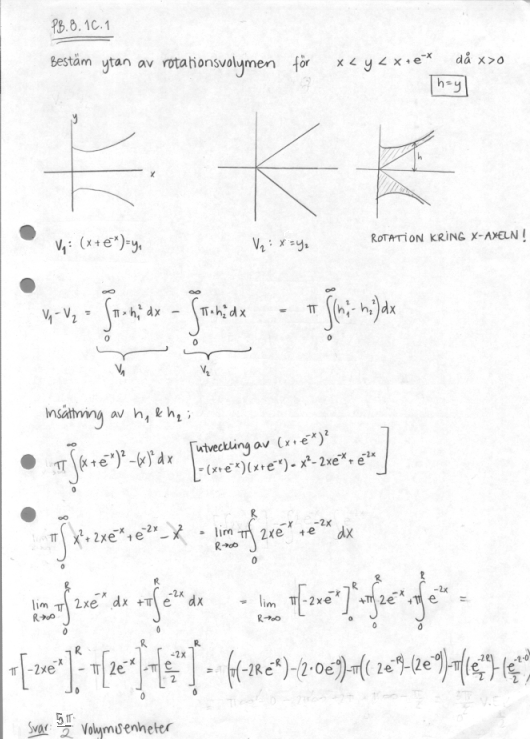 PB.8.1C.1
Bestäm ytan av rotationsvolymen för x < y < x + e^-x då x>0
h=y
y
x
h
V₁: (x+e^-x)=y₁
V₂: x=y₂
ROTATION KRING X-AXELN!
V₁-V₂ = ∫₀^∞ π·h₁² dx - ∫₀^∞ π·h₂² dx = π ∫₀^∞ (h₁² - h₂²) dx
V₁ V₂
Insättning av h₁ & h₂;
π∫₀^∞ (x+e^-x)² - (x)² dx [utveckling av (x+e^-x)²
=(x+e^-x)(x+e^-x) = x² - 2xe^-x + e^-2x]
π∫₀^∞ x² + 2xe^-x + e^-2x - x² = lim R→∞ π∫₀^R 2xe^-x + e^-2x dx
lim R→∞ π∫₀^R 2xe^-x dx + π∫₀^R e^-2x dx = lim R→∞ π[-2xe^-x]₀^R + π∫₀^R 2e^-x + π∫₀^R e^-2x =
π[-2xe^-x]₀^R - π[2e^-x]₀^R - π[e^-2x/2]₀^R = (π(-2Re^-R)-(2·0e^-0)-π((2e^-R)-(2e^-0)-π((e^-2R/2)-(e^-2·0/2)
Svar 5π/2 Volymsenheter